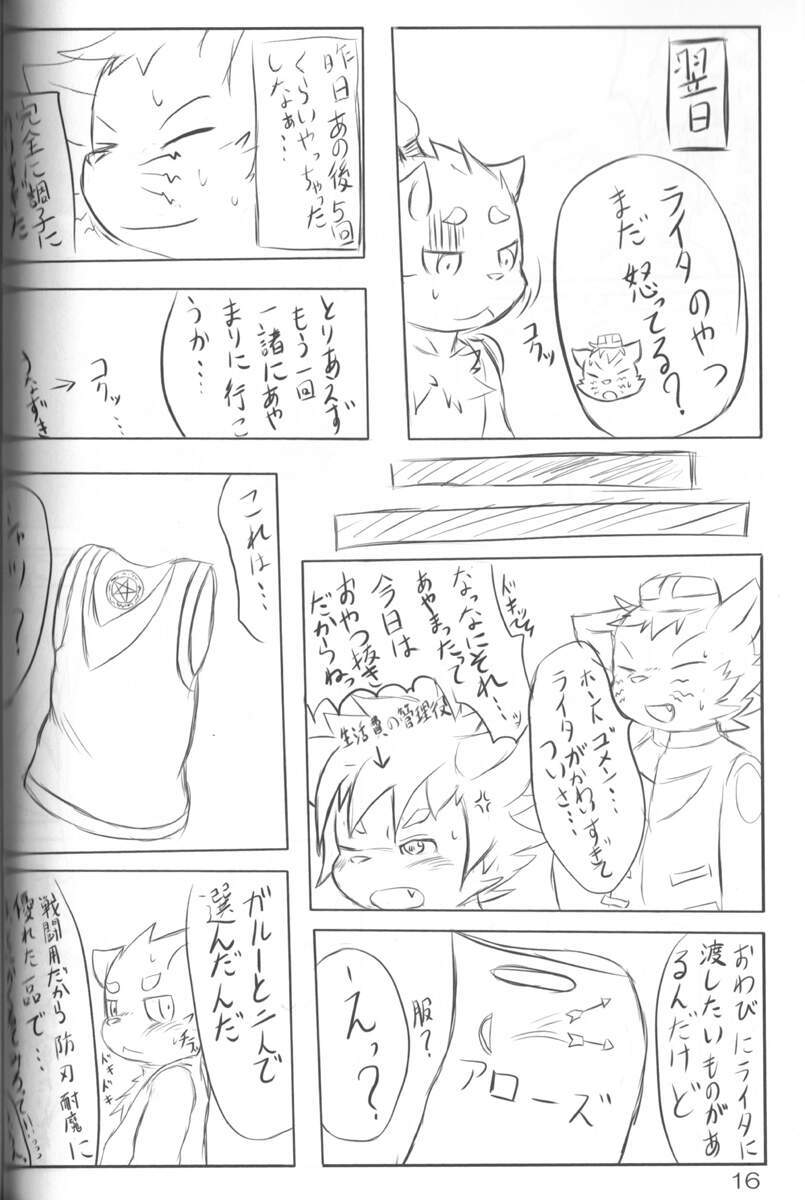 翌日
ライタのやつ
まだ怒ってる?
コクッ
昨日あの後5回
くらいやっちゃった
しなぁ…
完全に調子に
とりあえず
もう一回
一諸にあや
まりに行こ
うか…
コクッ…
→
うなずき
ホントゴメン…
ライタがかわいすぎて
ついさ…
ドキッ
なっなにそれ…ッ
あやまったって
今日は
おやつ抜き
だからねっ
生活費の管理役
これは…
シャツ?
おわびにライタに
渡したいものがあ
るんだけど
アローズ
服?
えっ?
ガルーと二人で
選んだんだ
ドキドキ
戦闘用だから防刃耐魔に
優れた一品で…
16